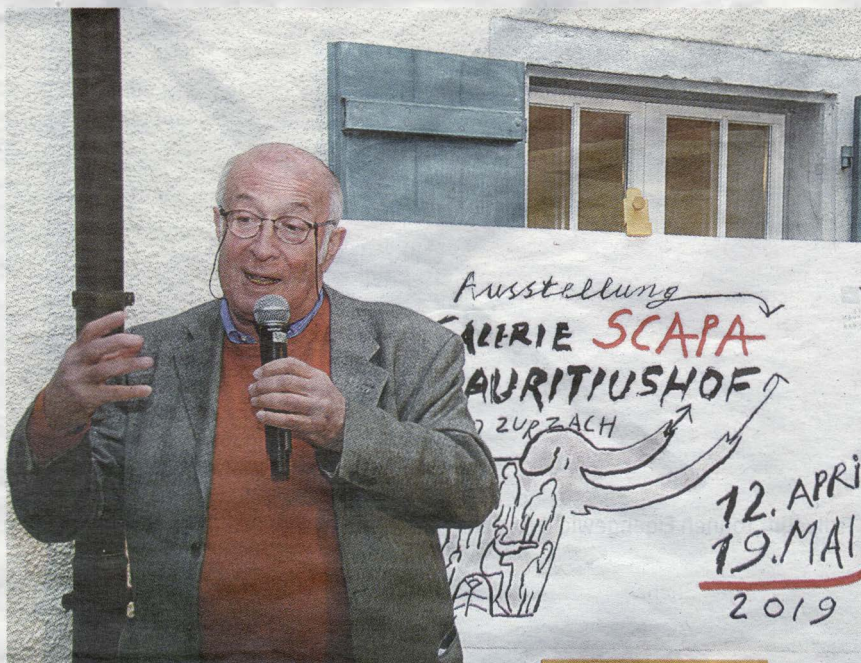 Ausstellung
ALERIE SCAPA
AURITIUSHOF
ZURZACH
12. APRI
19. MAI
2019